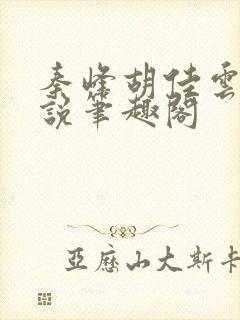 秦烽胡佳雲
說筆趣閣
亞歷山大斯卡